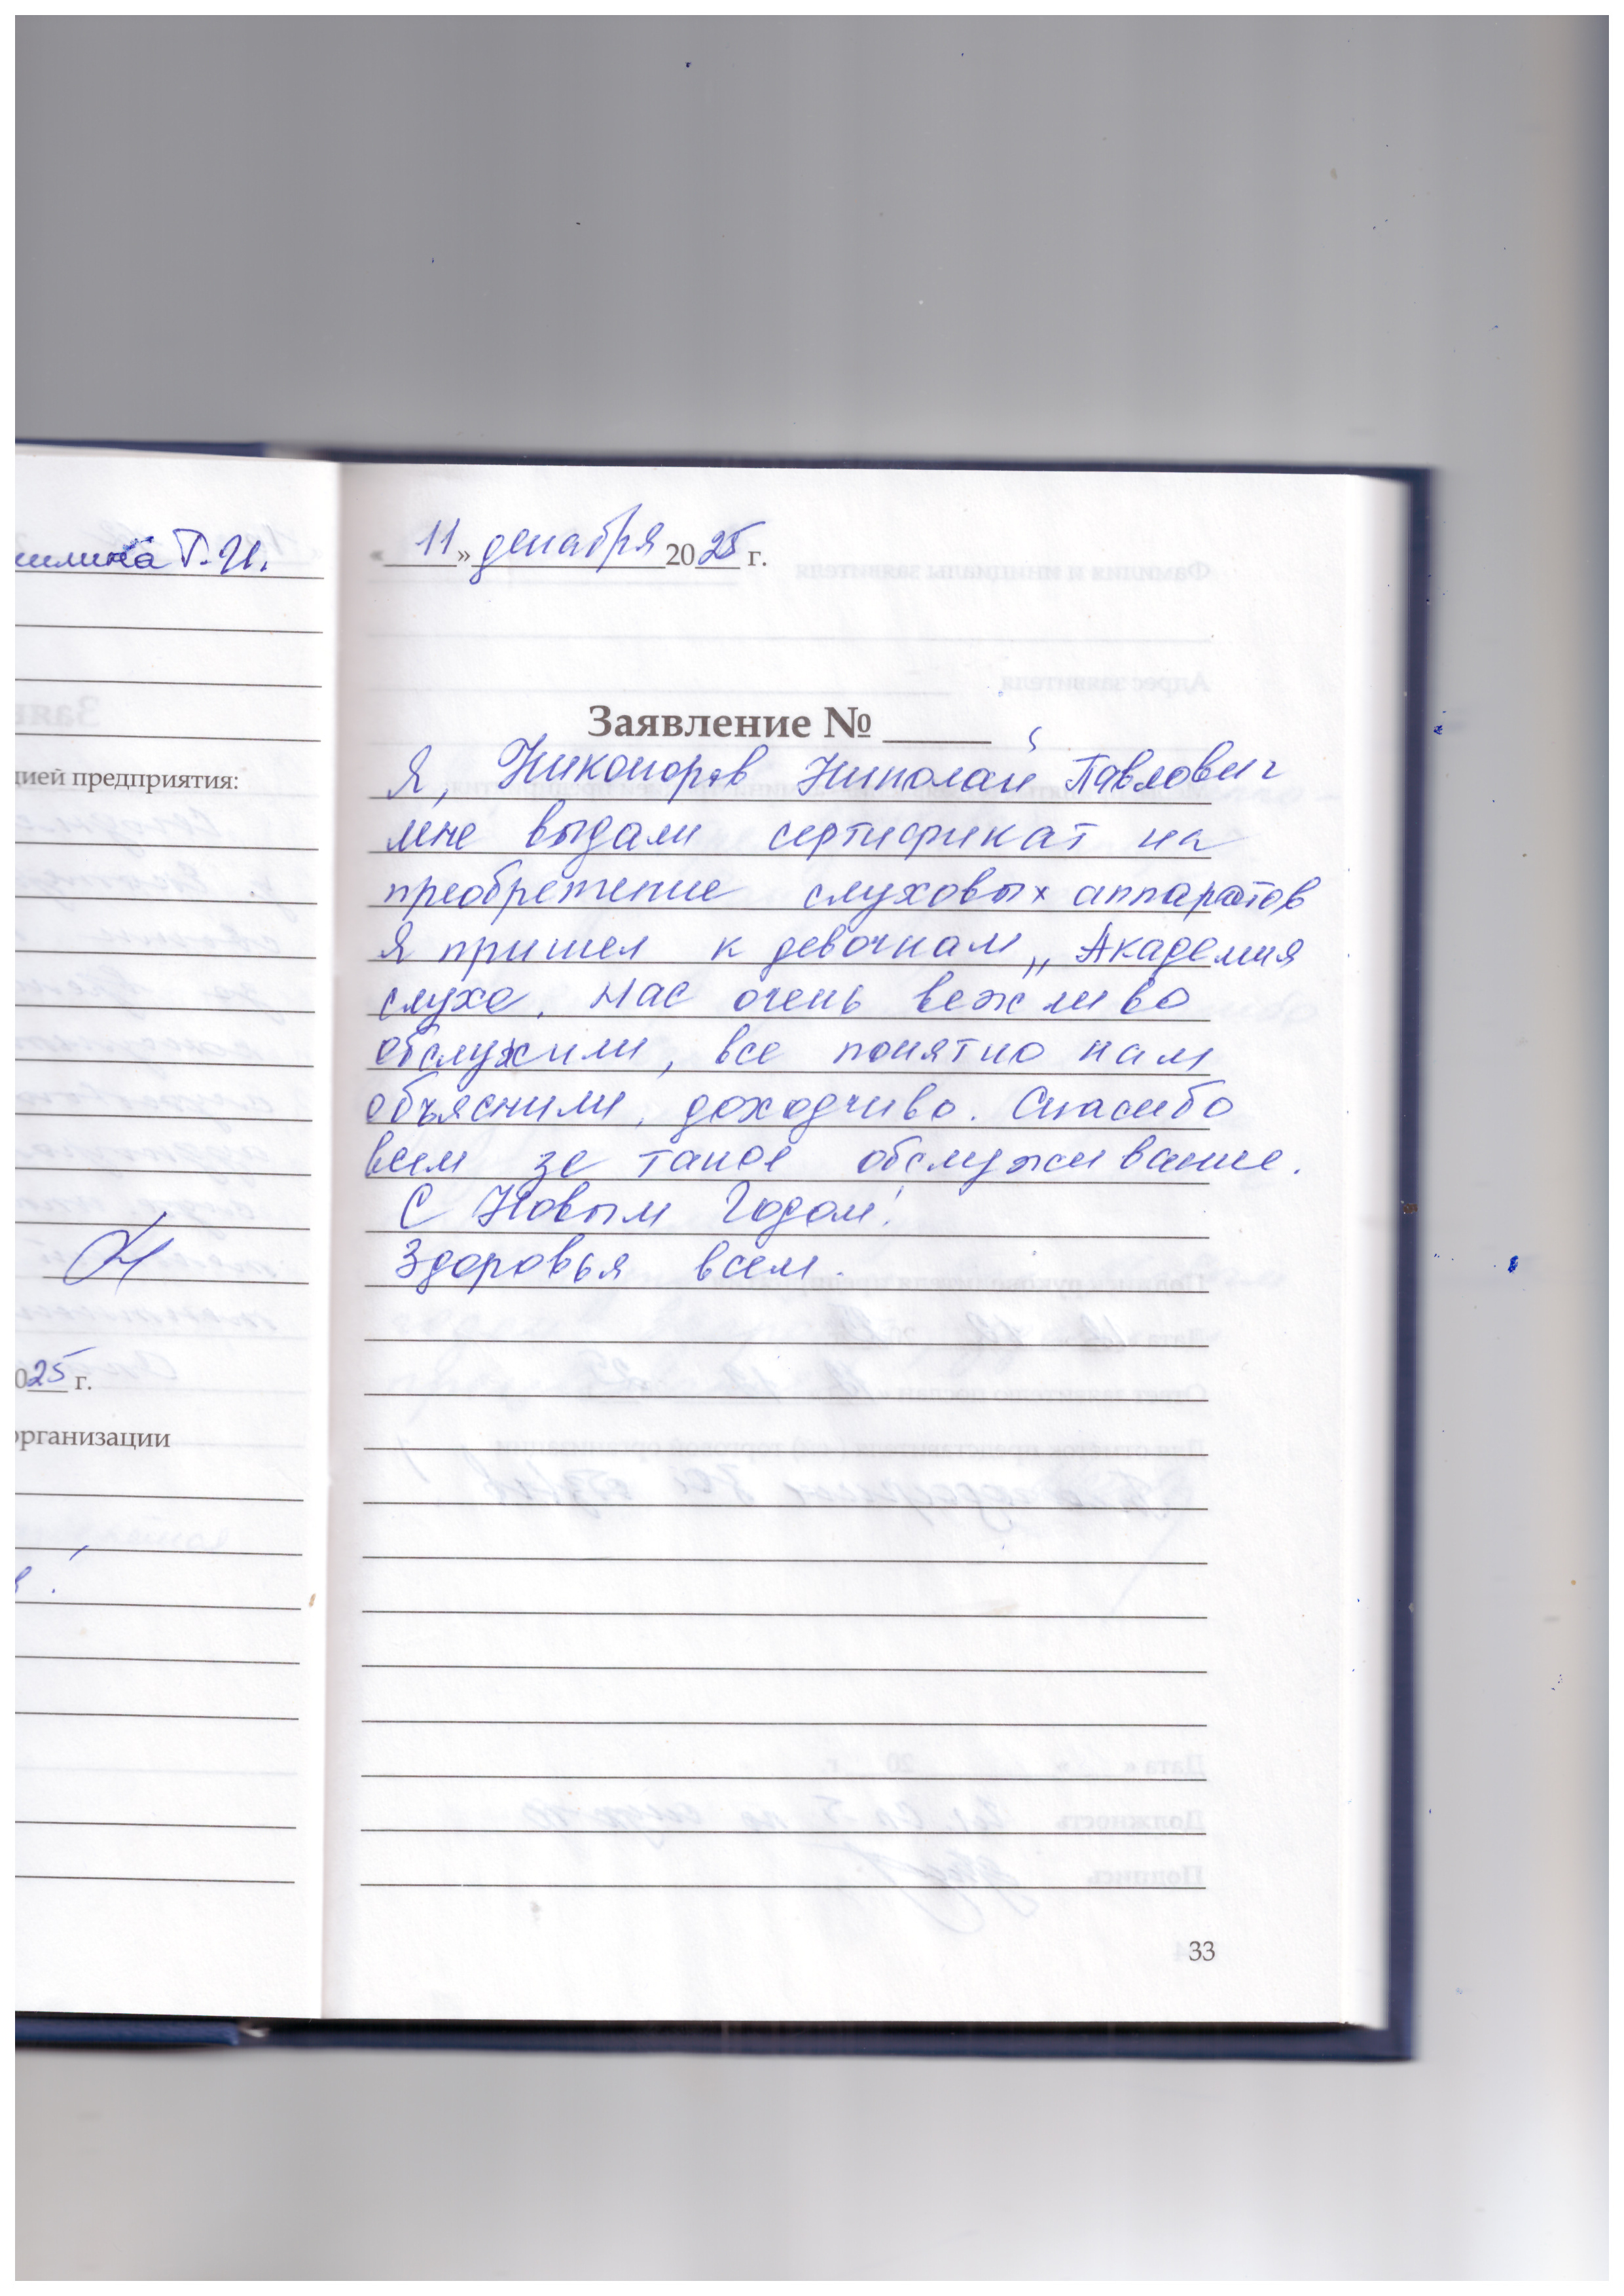 Т.И.
цией предприятия:
025 г.
организации
«11» декабря 2025 г.
Заявление №
Я, Никоноров Николай Павлович
мне выдали сертификат на
преобретение слуховых аппаратов
Я пришел к девочкам „Академия
слуха. Нас очень вежливо
обслужили, все понятно нам
объяснили, доходчиво. Спасибо
всем за такое обслуживание.
С Новым Годом!
Здоровья всем.
33